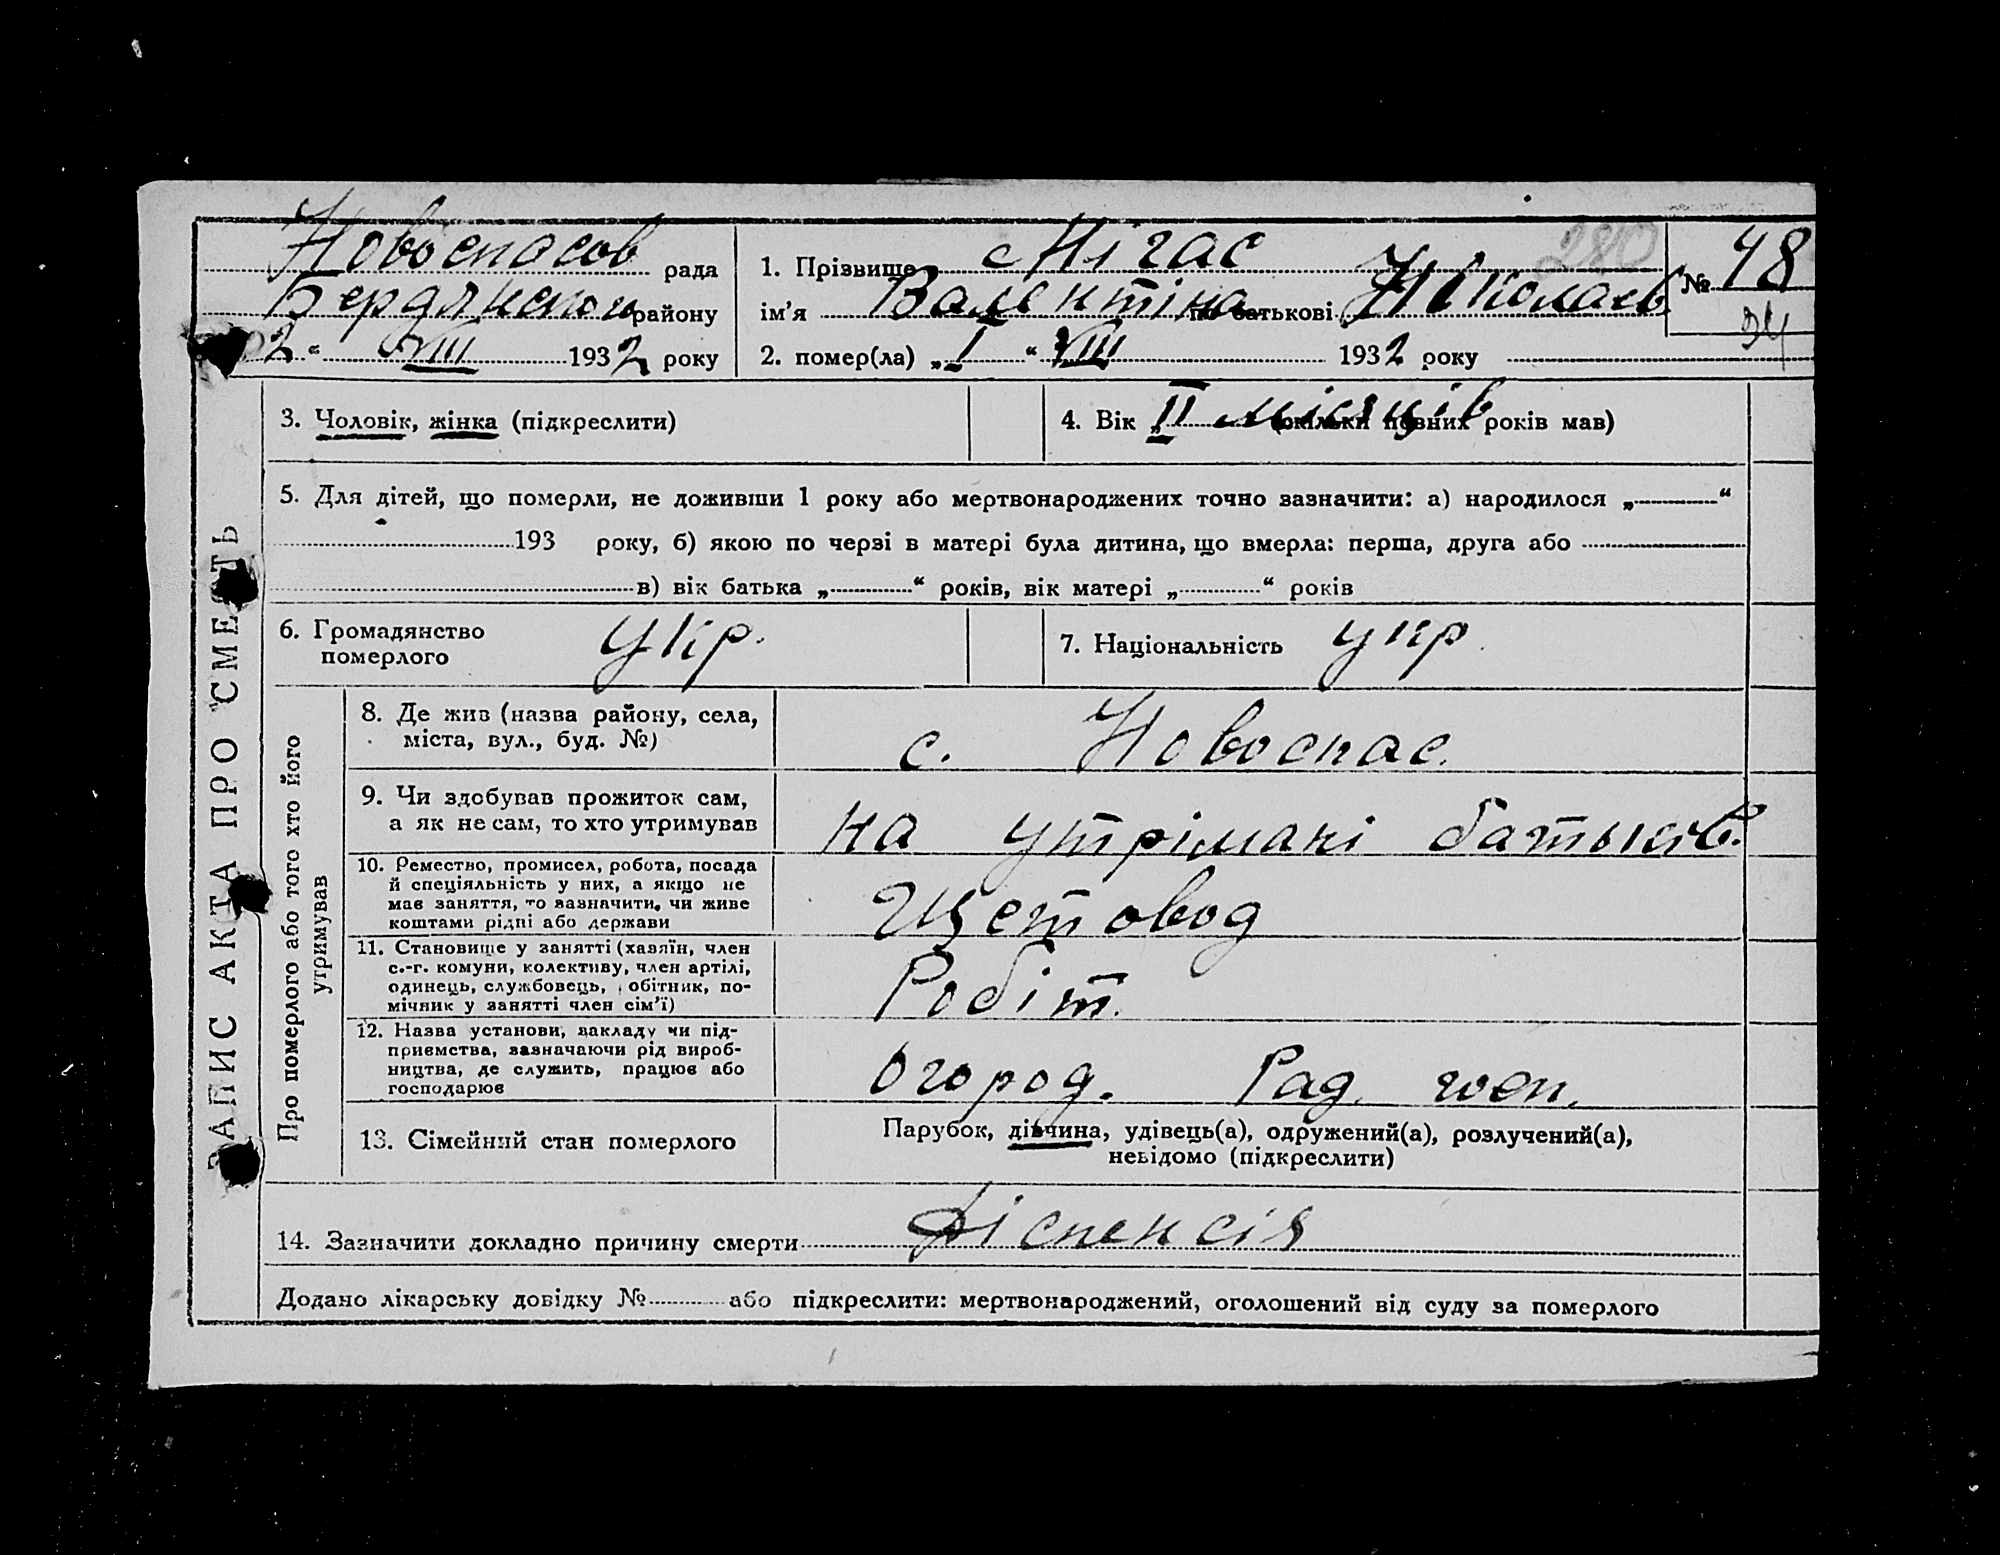 ЗАПИС АКТА ПРО СМЕРТЬ
Новоспасов рада
Бердянського району
2 “ VIII 1932 року
1. Прізвище Мігас
280
ім’я Валентіна по батькові Ніколаєв
№ 48
34
2. помер(ла) „ I “ VIII 1932 року
3. Чоловік, жінка (підкреслити)
4. Вік „ II місяців (скільки повних років мав)
5. Для дітей, що померли, не доживши 1 року або мертвонароджених точно зазначити: а) народилося „ “
193 року, б) якою по черзі в матері була дитина, що вмерла: перша, друга або
в) вік батька „ “ років, вік матері „ “ років
6. Громадянство
померлого
укр.
7. Національність укр
Про померлого або того хто його
утримував
8. Де жив (назва району, села,
міста, вул., буд. №)
с. Новоспас.
9. Чи здобував прожиток сам,
а як не сам, то хто утримував
на утрімані батьків.
10. Ремество, промисел, робота, посада
й спеціяльність у них, а якщо не
мав заняття, то зазначити, чи живе
коштами рідні або держави
Щетовод
11. Становище у занятті (хазяїн, член
с.-г. комуни, колективу, член артілі,
одинець, службовець, обітник, по-
мічник у занятті член сім’ї)
Робіт.
12. Назва установи, закладу чи під-
приємства, зазначаючи рід вироб-
ництва, де служить, працює або
господарює
Огород. Рад.
13. Сімейний стан померлого
Парубок, дівчина, удівець(а), одружений(а), розлучений(а),
невідомо (підкреслити)
14. Зазначити докладно причину смерти Діспенсія
Додано лікарську довідку № або підкреслити: мертвонароджений, оголошений від суду за померлого